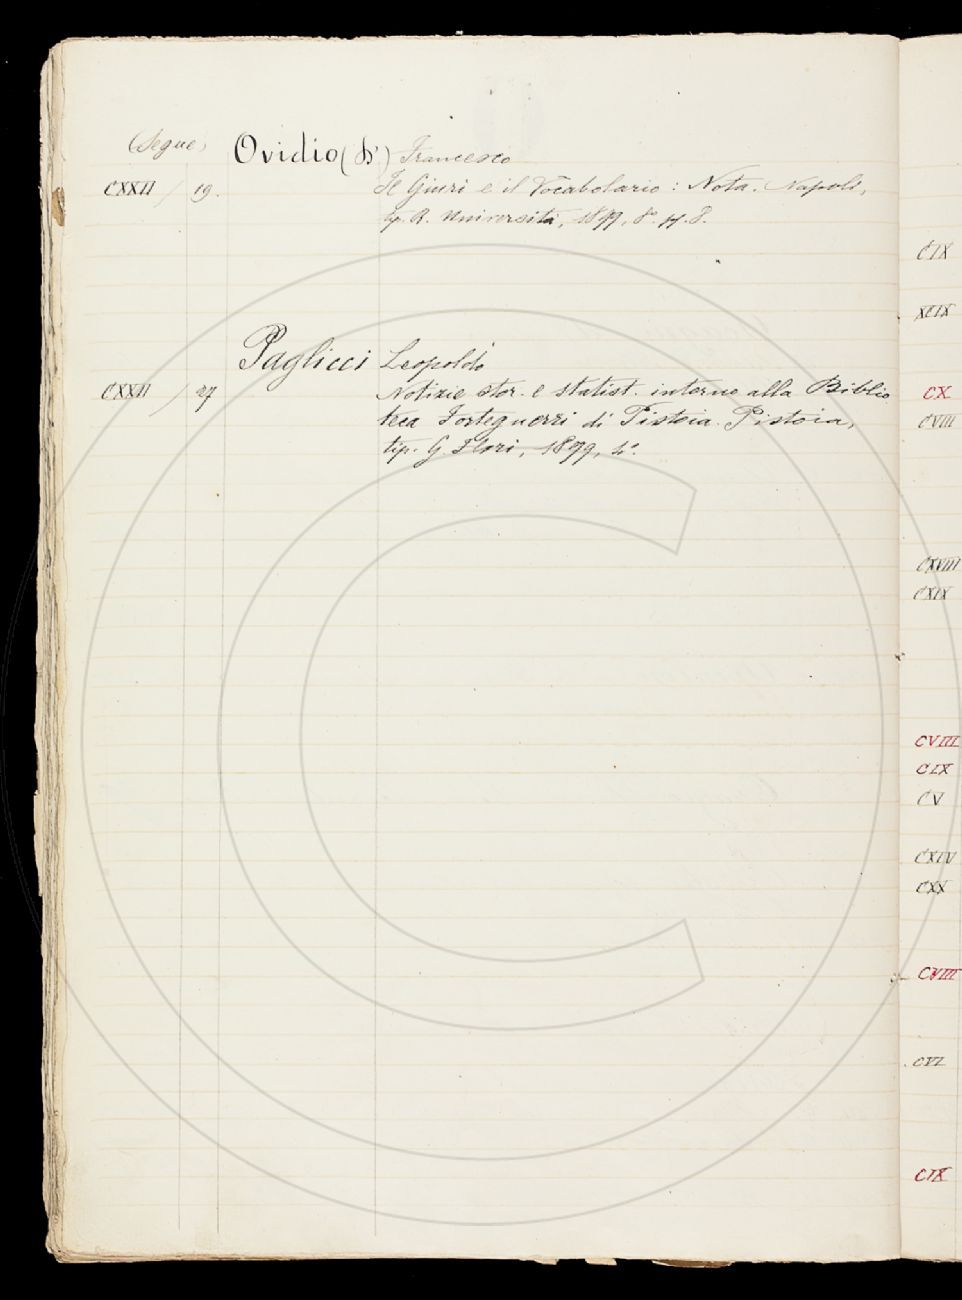 (Segue)
Ovidio (D') Francesco
CXXII / 19. Il Giuri e il Vocabolario: Nota. Napoli,
tip. R. Università, 1899, 8º. p. 8.
Paglicci Leopoldo
CXXII / 27 Notizie stor. e statist. intorno alla Biblio
teca Forteguerri di Pistoia. Pistoia,
tip. G. Flori, 1899, 4º.
CIX
XCIX
CX
CVIII
CXVIII
CXIX
CVIII
CIX
CV
CXIV
CXX
CVIII
CVI
CIX